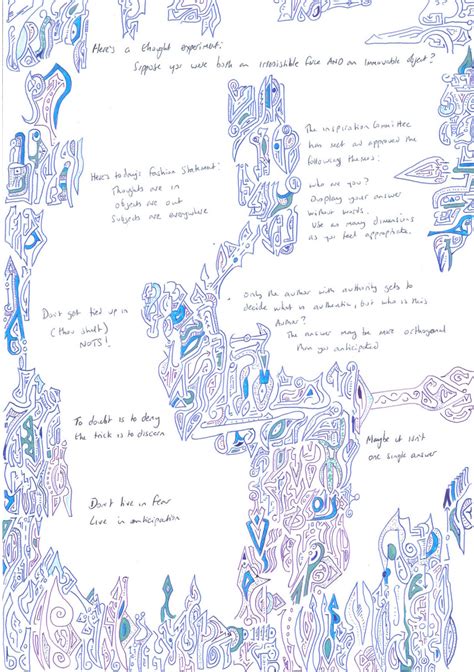 Here's a thought experiment:
Suppose you were both an irresistible force AND an immovable object?
The inspiration Committee
has met and approved the
following theses:
Here's today's Fashion Statement:
Thoughts are in
Objects are out
Subjects are everywhere
who are you?
Display your answer
without words.
Use as many dimensions
as you feel appropriate.
Only the author with authority gets to
decide what is authentic, but who is this
Author?
The answer may be more orthogonal
than you anticipated
Don't get tied up in
(thou shalt)
NOTS!
To doubt is to deny
the trick is to discern
Maybe it isn't
one single answer
Don't live in fear
Live in anticipation